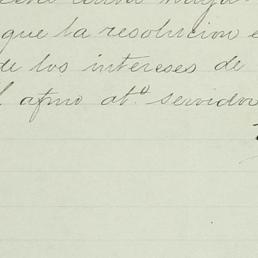 que la resolucion
de los intereses de
afmo at.º servidor